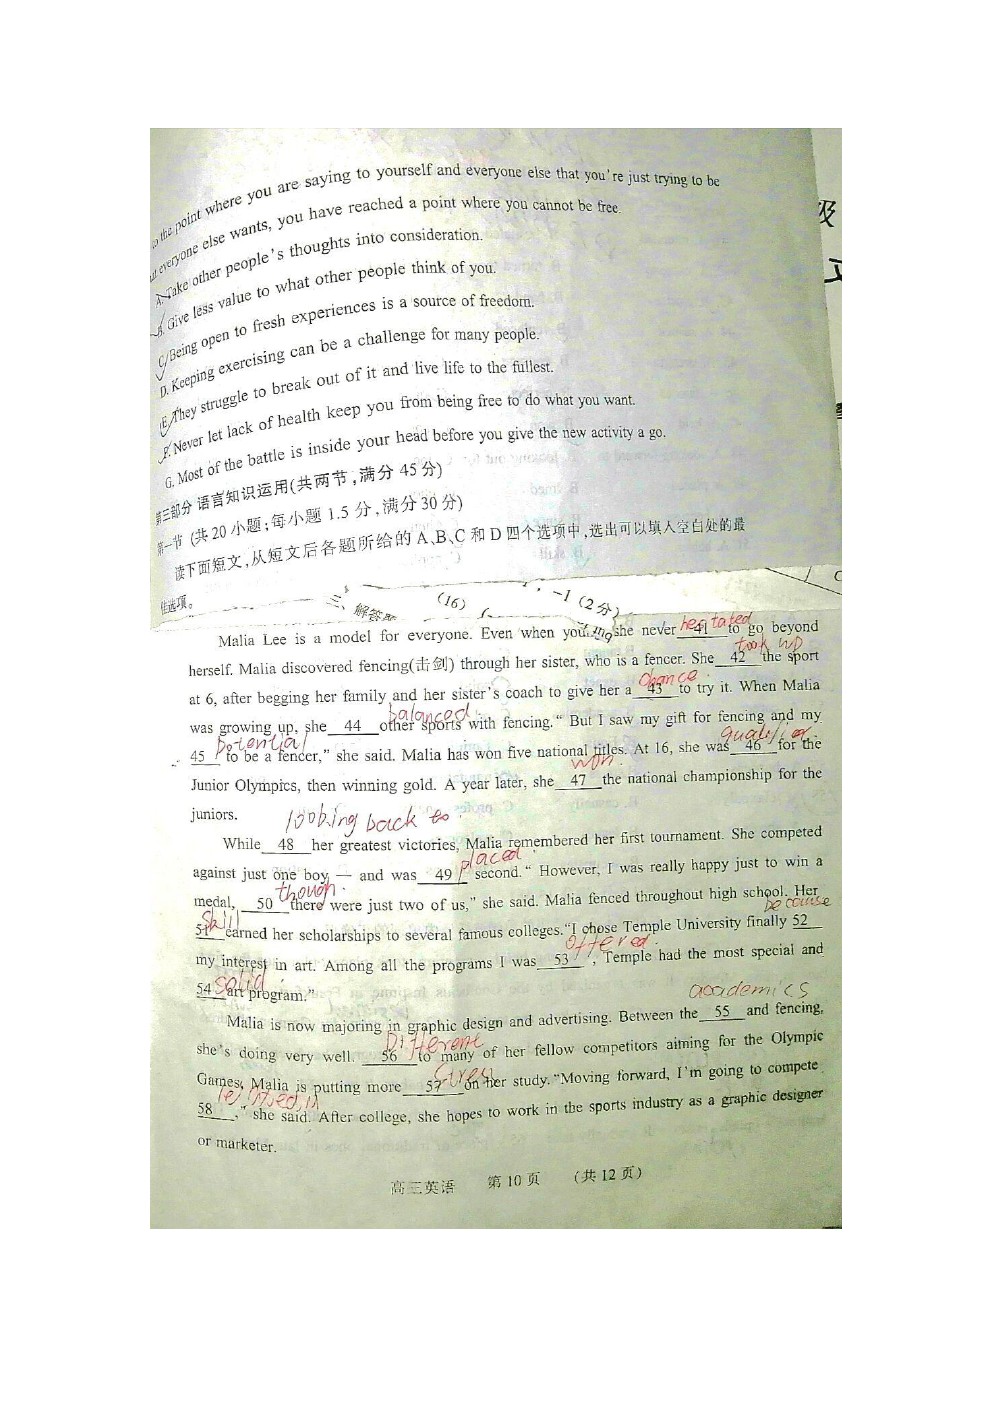 the point where you are saying to yourself and everyone else that you're just trying to be
everyone else wants, you have reached a point where you cannot be free.
A. Take other people's thoughts into consideration.
B. Give less value to what other people think of you.
C. Being open to fresh experiences is a source of freedom.
D. Keeping exercising can be a challenge for many people.
E. They struggle to break out of it and live life to the fullest.
F. Never let lack of health keep you from being free to do what you want.
G. Most of the battle is inside your head before you give the new activity a go.
第三部分 语言知识运用(共两节,满分 45 分)
第一节 (共 20 小题;每小题 1.5 分,满分 30 分)
读下面短文,从短文后各题所给的 A、B、C 和 D 四个选项中,选出可以填入空白处的最
佳选项。
三、解答题
(16)
-1 (2分)
hesitated
Malia Lee is a model for everyone. Even when young she never 41 to go beyond
took up
herself. Malia discovered fencing(击剑) through her sister, who is a fencer. She 42 the sport
chance
at 6, after begging her family and her sister's coach to give her a 43 to try it. When Malia
balanced
was growing up, she 44 other sports with fencing. "But I saw my gift for fencing and my
potential
45 to be a fencer," she said. Malia has won five national titles. At 16, she was 46 for the
won
Junior Olympics, then winning gold. A year later, she 47 the national championship for the
juniors.
looking back to
While 48 her greatest victories, Malia remembered her first tournament. She competed
placed
against just one boy — and was 49 second. "However, I was really happy just to win a
though
medal, 50 there were just two of us," she said. Malia fenced throughout high school. Her
skill
because
51 earned her scholarships to several famous colleges. "I chose Temple University finally 52
offered
my interest in art. Among all the programs I was 53, Temple had the most special and
solid
54 art program."
academics
Malia is now majoring in graphic design and advertising. Between the 55 and fencing,
Different
she's doing very well. 56 to many of her fellow competitors aiming for the Olympic
Games, Malia is putting more 57 on her study. "Moving forward, I'm going to compete
58," she said. After college, she hopes to work in the sports industry as a graphic designer
or marketer.
高三英语 第 10 页 (共 12 页)
级